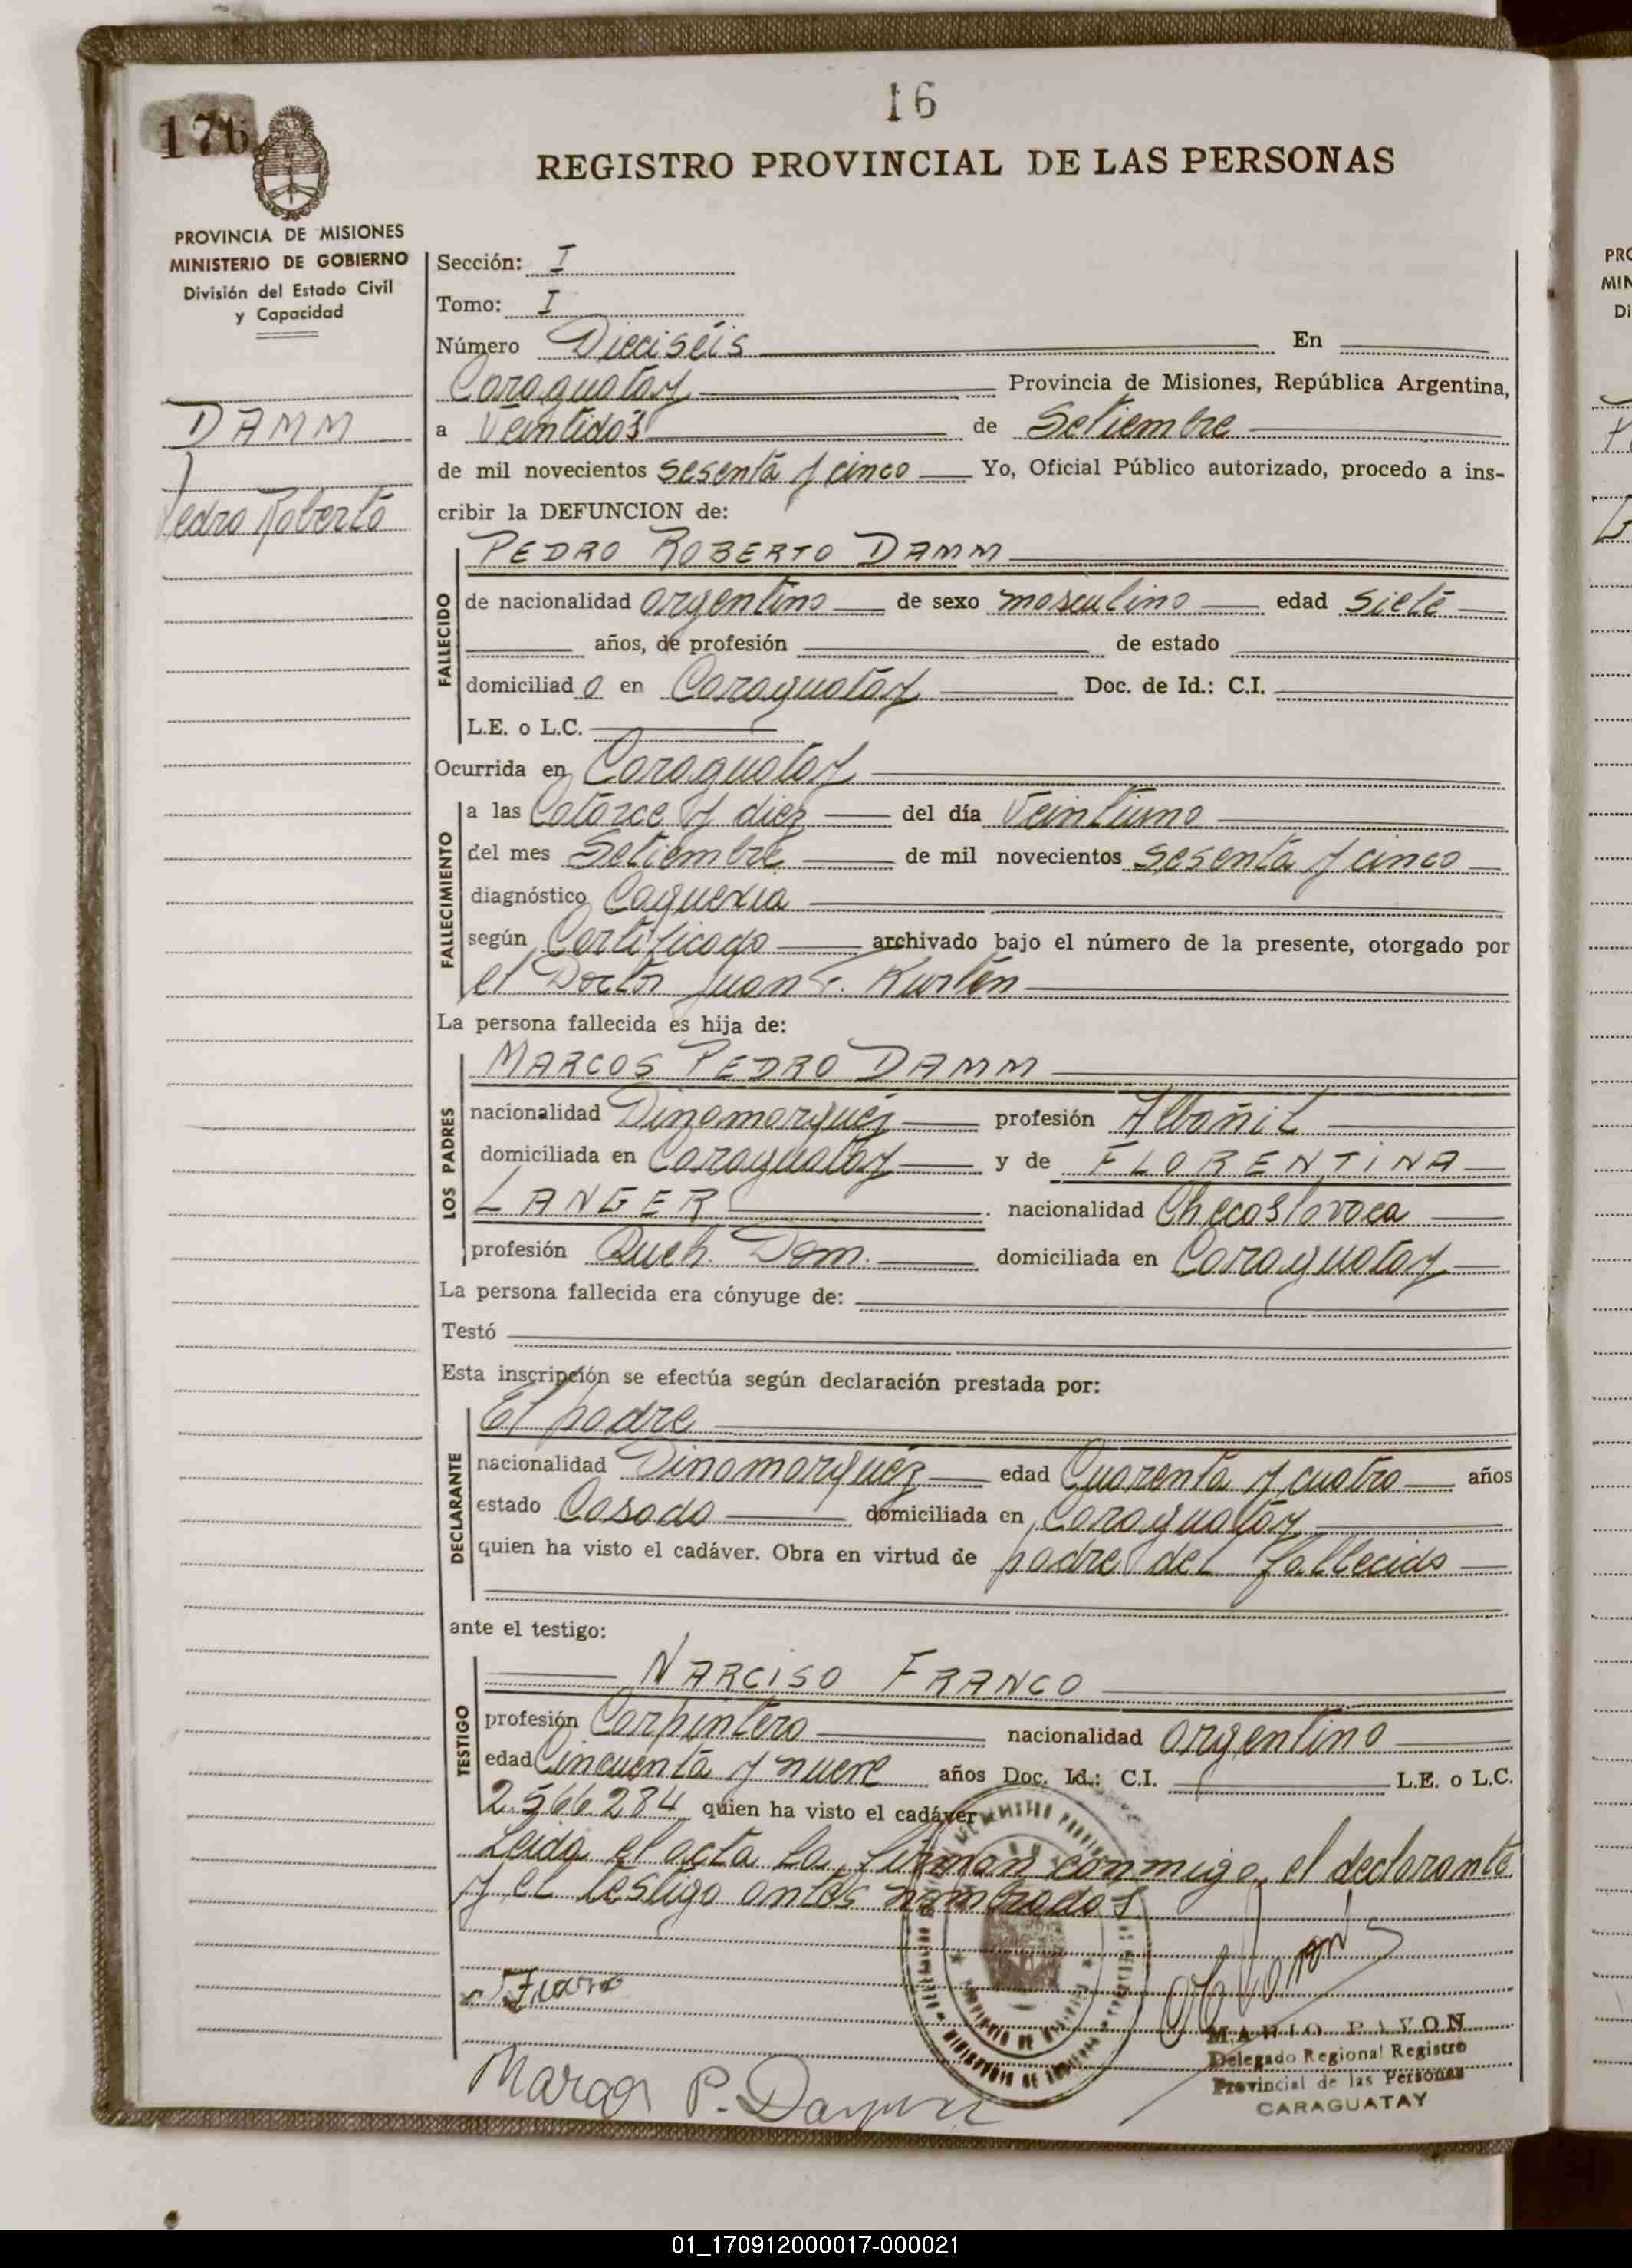 16
176
REGISTRO PROVINCIAL DE LAS PERSONAS
PROVINCIA DE MISIONES
MINISTERIO DE GOBIERNO
División del Estado Civil
y Capacidad
DAMM
Pedro Roberto
Sección: I
Tomo: I
Número Dieciséis En
Caraguatay Provincia de Misiones, República Argentina,
a Veintidós de Setiembre
de mil novecientos sesenta y cinco Yo, Oficial Público autorizado, procedo a ins-
cribir la DEFUNCION de:
FALLECIDO
PEDRO ROBERTO DAMM
de nacionalidad argentino de sexo masculino edad siete
años, de profesión de estado
domiciliado en Caraguatay Doc. de Id.: C.I.
L.E. o L.C.
Ocurrida en Caraguatay
FALLECIMIENTO
a las Catorce y diez del día Veintiuno
del mes Setiembre de mil novecientos sesenta y cinco
diagnóstico Caquexia
según Certificado archivado bajo el número de la presente, otorgado por
el Doctor Juan F. Kurten
La persona fallecida es hija de:
LOS PADRES
MARCOS PEDRO DAMM
nacionalidad Dinamarquéz profesión Albañil
domiciliada en Caraguatay y de FLORENTINA
LANGER nacionalidad Checoslovaca
profesión Queh. Dom. domiciliada en Caraguatay
La persona fallecida era cónyuge de:
Testó
Esta inscripción se efectúa según declaración prestada por:
DECLARANTE
El padre
nacionalidad Dinamarquéz edad Cuarenta y cuatro años
estado Casado domiciliada en Caraguatay
quien ha visto el cadáver. Obra en virtud de padre del fallecido
ante el testigo:
TESTIGO
NARCISO FRANCO
profesión Carpintero nacionalidad argentino
edad Cincuenta y nueve años Doc. Id.: C.I. L.E. o L.C.
2.566.284 quien ha visto el cadáver
Leida el acta la firman conmigo, el declarante
y el testigo antes nombrados
MARIO PAVON
Delegado Regional Registro
Provincial de las Personas
CARAGUATAY
Marcos P. Damm
PRO
MIN
Di
01_170912000017-000021